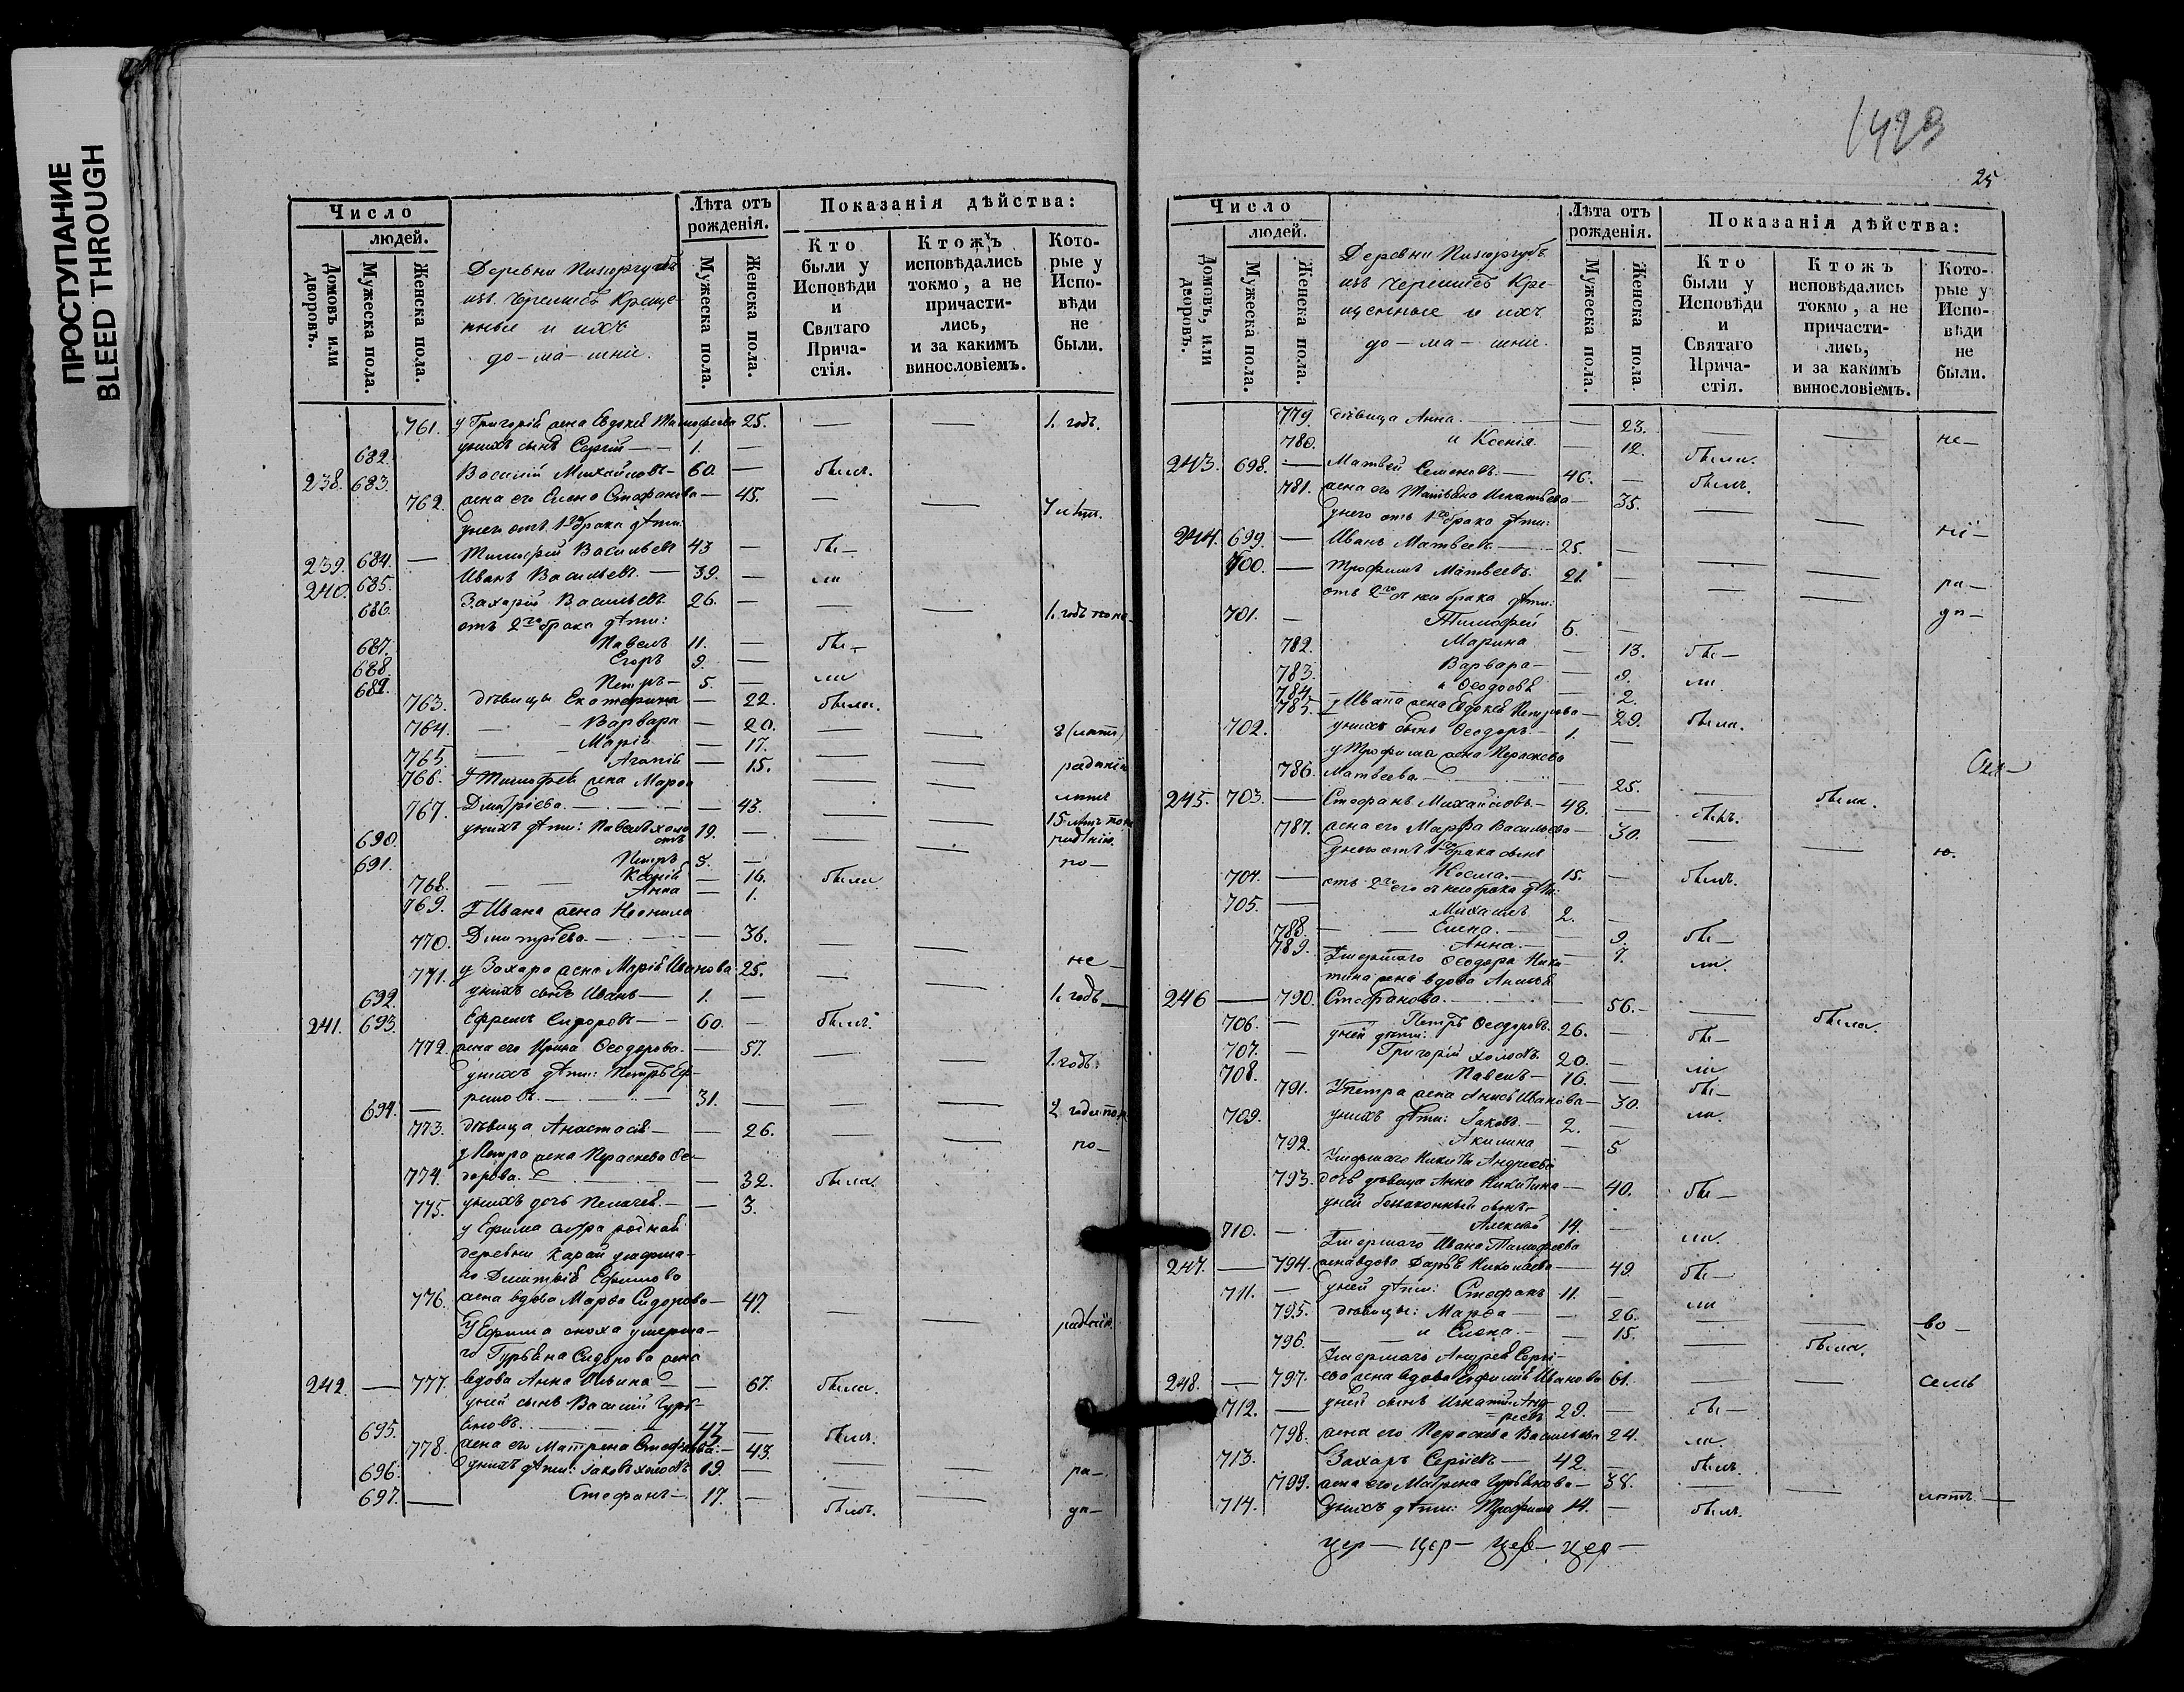 ПРОСТУПАНИЕ
BLEED THROUGH
1429
25
Число
людей.
Домовъ или дворовъ.
Мужеска пола.
Женска пола.
Лѣта отъ рожденія.
Мужеска пола.
Женска пола.
Показанія дѣйства:
Кто были у Исповѣди и Святаго Причастія.
Ктожъ исповѣдались токмо, а не причастились, и за какимъ винословіемъ.
Которые у Исповѣди не были.
Деревни
изъ Черемисъ Креще-
нные и ихъ
до-ма-шніе.
761. у Григорія жена Евдокія Тимофеева 25. — — 1. годъ.
682. у нихъ сынъ Сергій — 1. —
238. 683. Василій Михайловъ — 60. — былъ.
762. жена его Елена Стефанова — 45. — —
у него отъ 1го брака дѣти:
239. 684. — Тимофей Васильевъ 43 — бы-
240. 685. Иванъ Васильевъ. — 39. — ли
686. Захарій Васильевъ 26. — — — 1. годъ
отъ 2го брака дѣти:
687. Павелъ 11. — бы-
688. Егоръ 9. —
689. Петръ — 5. — ли
763. дѣвицы Екатерина — 22. были.
764. — Варвара — 20.
765. — Марія — 17. — —
766. Агапія — 15. — —
У Тимофея жена Марѳа
767. Димитріева. — — 43. — —
690. у нихъ дѣти: Павелъ холо
стъ 19. — — —
691. Петръ 5. — по-
768. — — Ксенія — 16. были
769. Анна — 1.
У Ивана жена Неонила
770. Димитріева. — — 36. — — не
771. у Захара жена Марія Иванова 25. — —
692. у нихъ сынъ Иванъ — 1. — 1. годъ
241. 693. Ефремъ Сидоровъ — 60. — былъ.
772. жена его Ирина Ѳеодорова. — 57. — — 1. годъ.
у нихъ дѣти: Петръ Еф-
694. — ремовъ. — 31. — — —
773. дѣвица Анастасія — — 26. — — по-
у Петра жена Параскева Ѳе-
774. дорова. — 32. была
775. у нихъ дочь Пелагея. — — 3.
деревни Карай умерша-
го
776. жена вдова Марѳа Сидорова — 47. — —
У Ефима сноха умерша-
го Гурьяна Сидорова жена
242. — 777. вдова Анна Ильина — — 67. была.
у ней сынъ Василій Гурь-
695. яновъ. — 43 — былъ.
778. жена его Матрена Стефанова: — 43. — —
696. у нихъ дѣти: Іаковъ холостъ 19. — — — ра-
697. — Стефанъ — 17. — былъ.
Число
людей.
Домовъ, или дворовъ.
Мужеска пола.
Женска пола.
Лѣта отъ рожденія.
Мужеска пола.
Женска пола.
Показанія дѣйства:
Кто были у Исповѣди и Святаго Причастія.
Ктожъ исповѣдались токмо, а не причастились, и за какимъ винословіемъ.
Которые у Исповѣди не были.
Деревни
изъ Черемисъ Кре-
щенные и ихъ
до-ма-шніе.
779. дѣвица Анна — 23. — — не-
780. и Ксенія — 12. были.
243. 698. — Матвей Семеновъ. — 46. — былъ.
781. жена его Татіана Игнатьева — 35. — —
у него отъ 1го брака дѣти:
244. 699. — Иванъ Матвеевъ — 25. — — —
700. — Трофимъ Матвеевъ. 21. — — — ра-
отъ 2го съ нею брака дѣти:
701. — Тимофей 5. —
782. Марина — 13. бы-
783. Варвара — 9. ли
784. и Ѳеодосія — 2.
785. у Ивана жена Евдокія Петрова — 29. была.
702. у нихъ сынъ Ѳеодоръ — 1. —
у Трофима жена Параскева
786. Матвеева — 25. — была.
245. 703. — Стефанъ Михайловъ — 48. — былъ.
787. жена его Марѳа Васильева — 30. — —
у него отъ 1го брака сынъ
704. — Косма. — 15. — былъ.
отъ 2го его съ нею брака дѣти:
705. — Михаилъ 2. —
788. — — Елена. — 9. бы-
789. — Анна. — 7. ли.
Умершаго Ѳеодора Ники-
тина жена вдова
246 — 790. Стефанова. — 56. — — была
706. — Петръ Ѳеодоровъ 26. — бы-
у ней дѣти:
707. — Григорій холостъ 20. — ли
708. Павелъ — 16. — бы-
791. У Петра жена Анисія Иванова — 30. ли.
709. у нихъ дѣти: Іаковъ — 2. —
792. Акилина — 5
Умершаго Никиты Андреева
793. дочь дѣвица Анна Никитина — 40. бы-
у ней беззаконный сынъ —
710. — Алексѣй 14. — ли.
Умершаго Ивана Тимофеева
247. — 794. жена вдова Дарья Николаева — 49. бы-
711. — у ней дѣти: Стефанъ 11. — ли
795. дѣвицы: Марѳа — — 26. — —
796. — — и Елена. — — 15. — была.
Умершаго Андрея Серги-
248. — 797. ева жена вдова Иванова 61. — — семь
712. — у ней сынъ Игнатій Анд-
реевъ 29. — бы-
798. жена его Параскева Васильева 24. ли.
713. Захаръ Сергіевъ — 42. — былъ.
799. жена его Матрена Гурьянова — 38. — — лѣтъ.
714. У нихъ дѣти: Трофимъ 14. — былъ.
цер — цер — цер — цер —